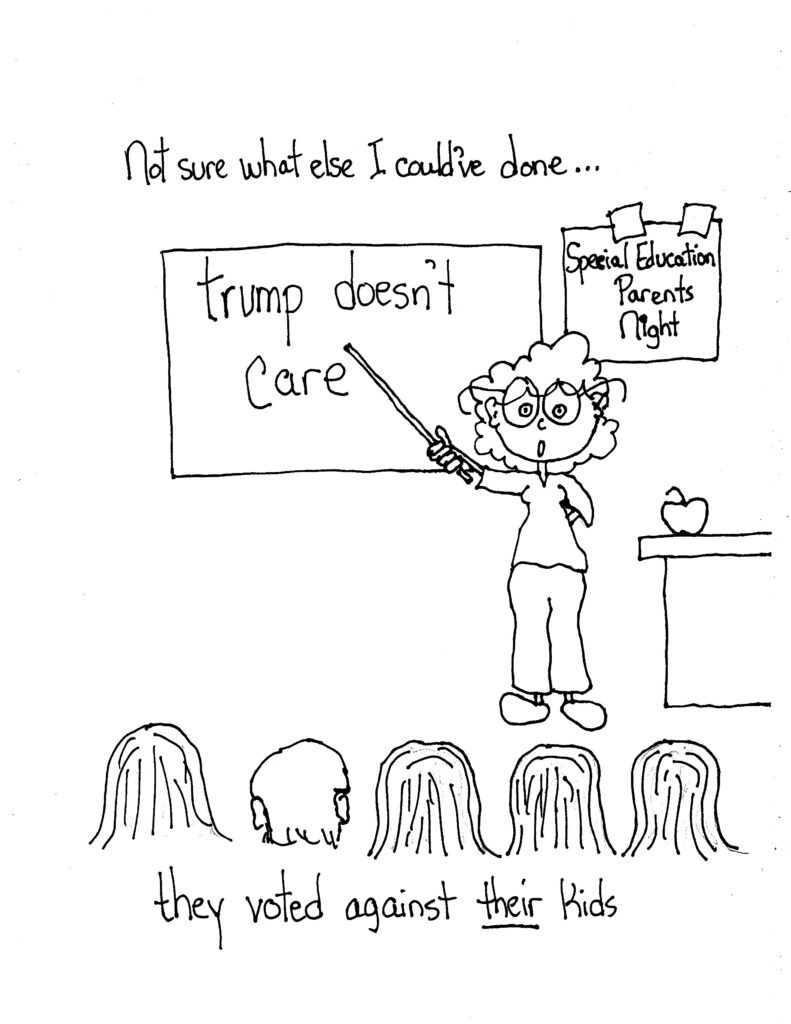 Not sure what else I could've done...
Special Education
Parents
Night
trump doesn't
care
they voted against their kids